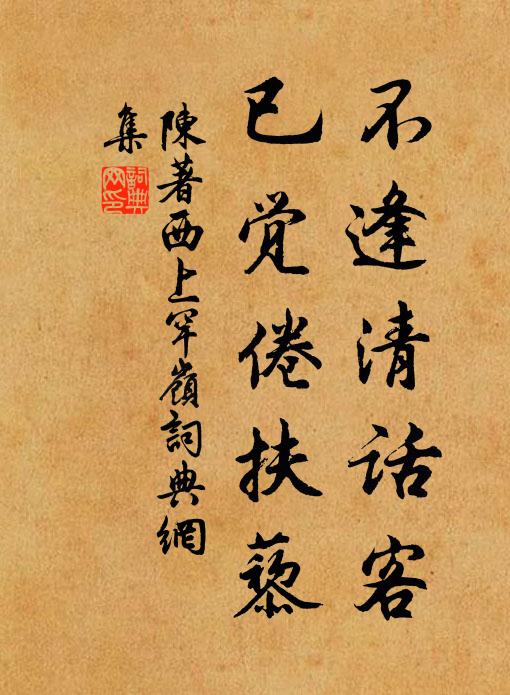 不逢清话客
已觉倦扶藜
陳著西上罕嶺詞典網
集
詞典
网印